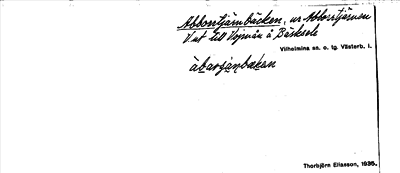 Abborrtjärnbäcken, ur Abborrtjärnen
V ut till Vojmån å Bäsksele
Vilhelmina sn. o. tg. Västerb. l.
àbarʃánbækan
Thorbjörn Eliasson, 1935.